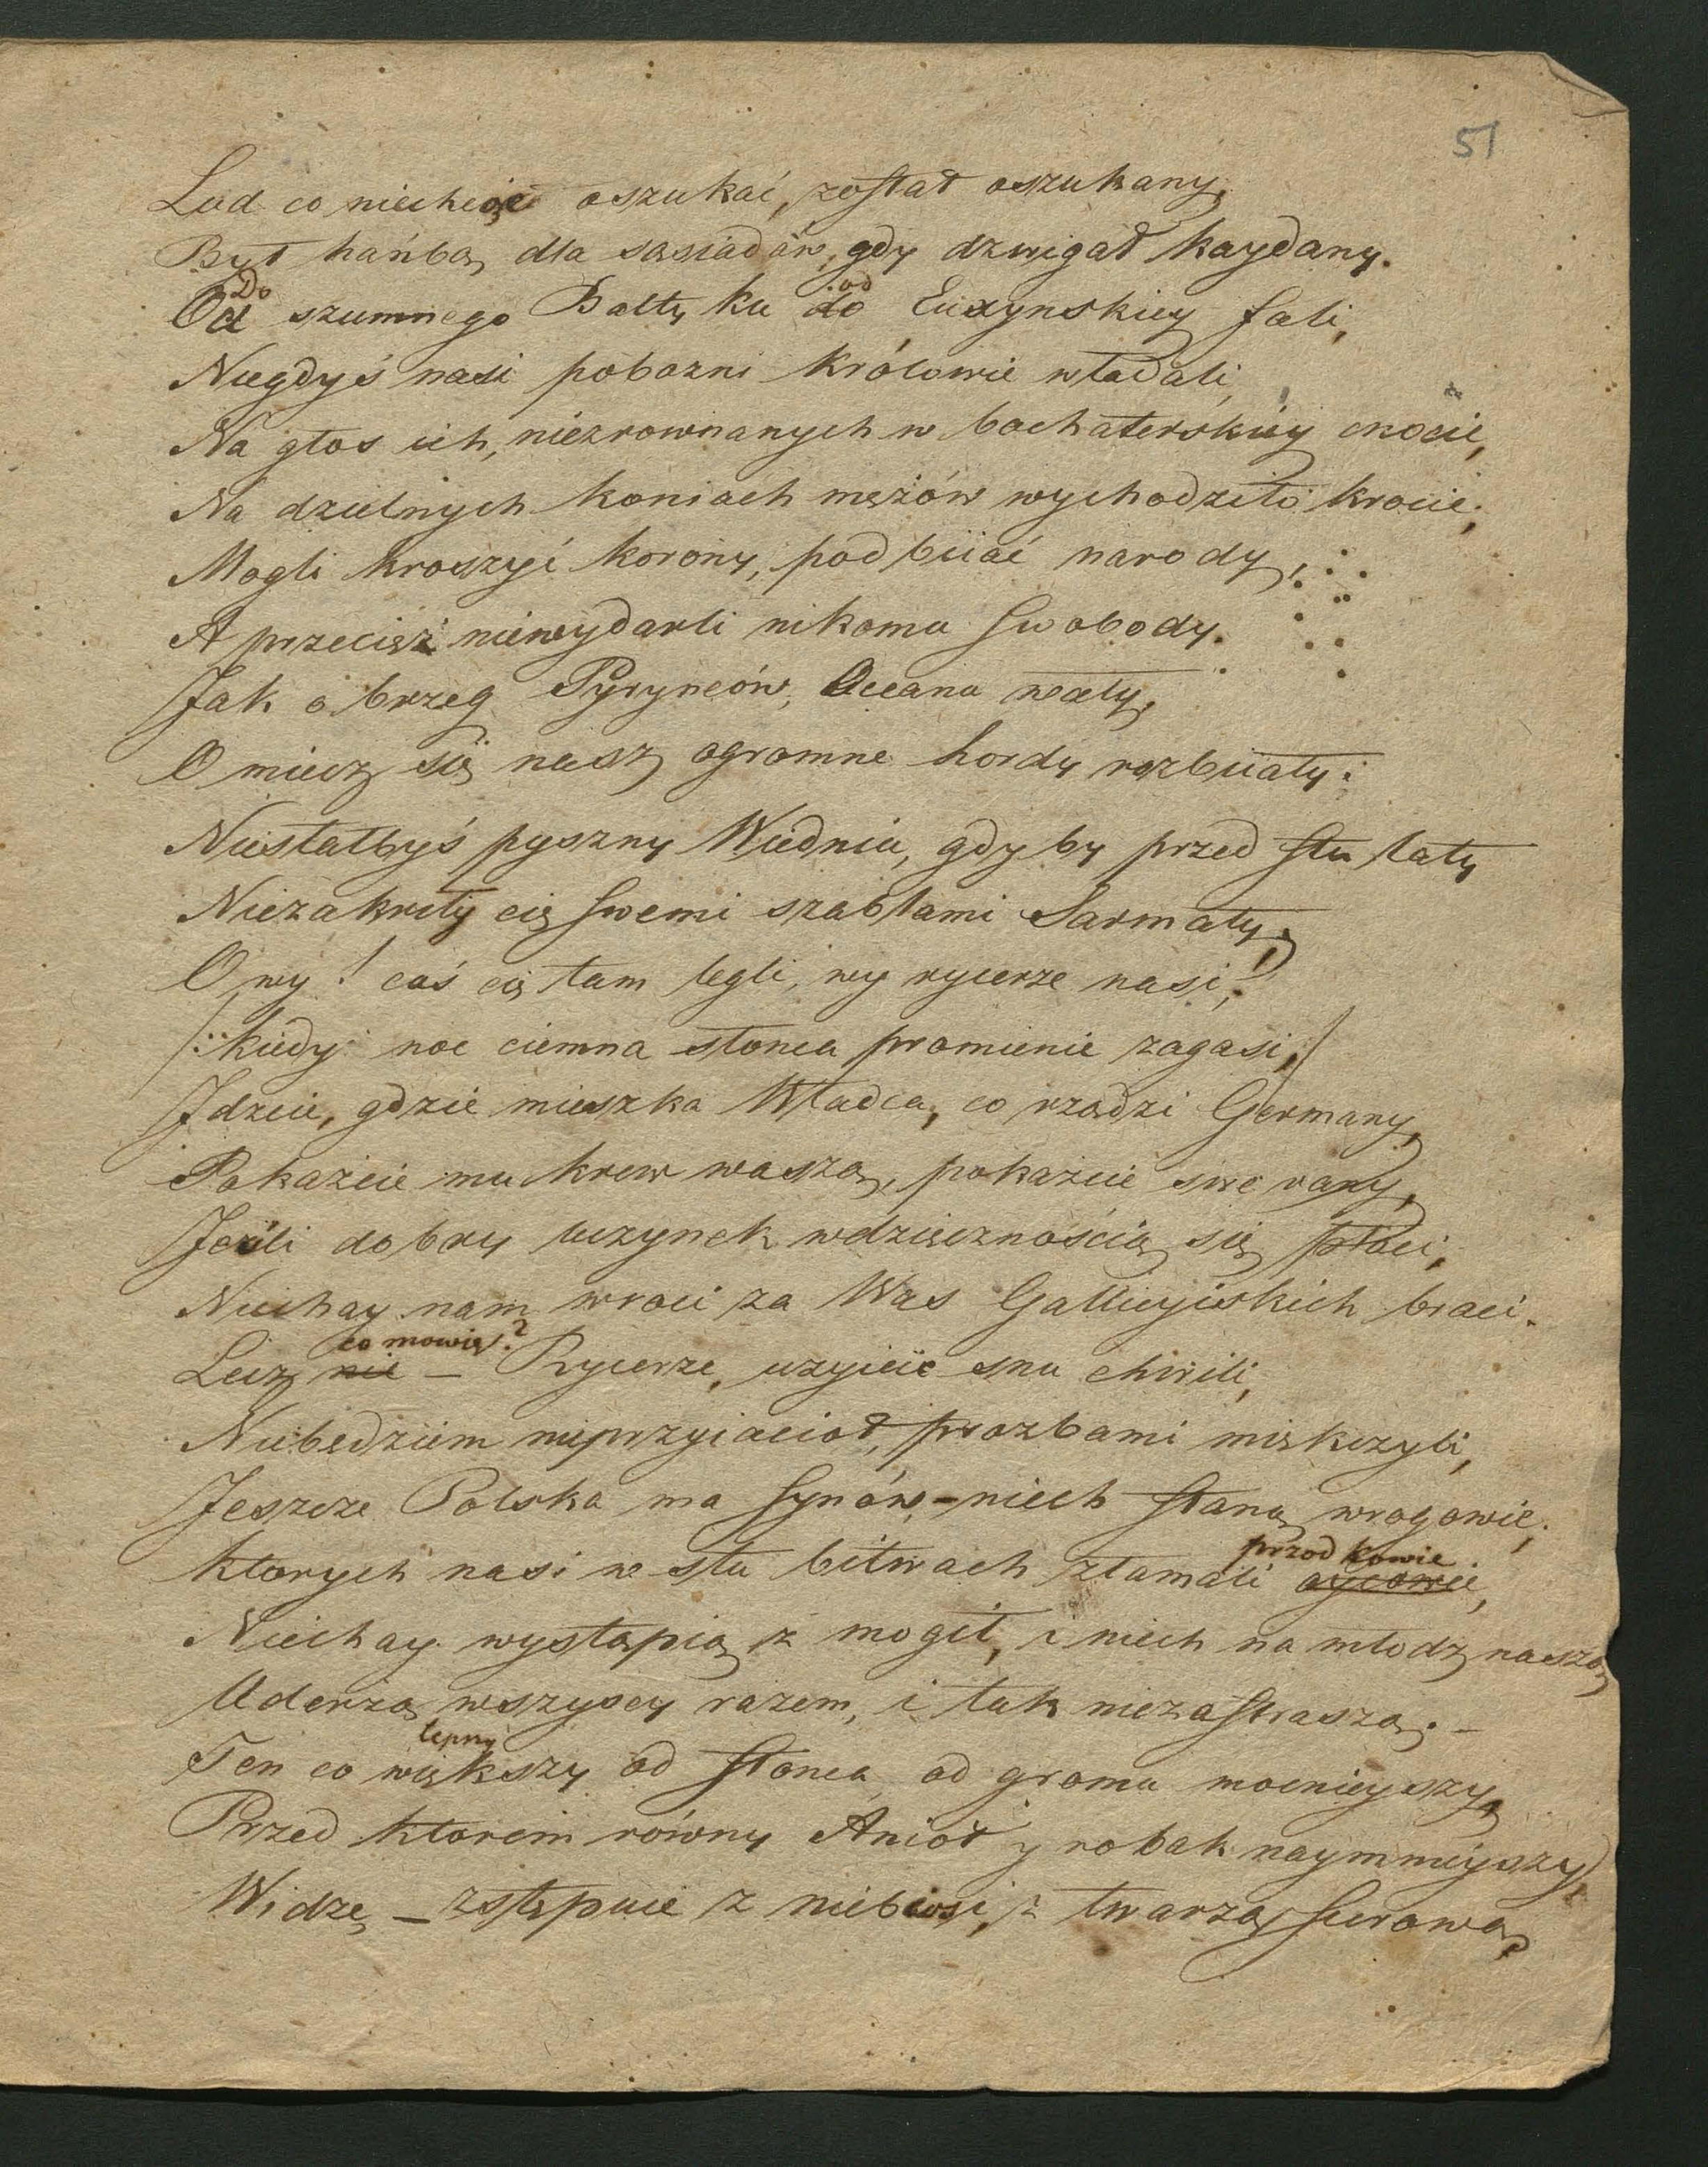 51
Lud co niechciał oszukać, został oszukany,
Był hańbą dla sąsiadów, gdy dzwigał kaydany.
Do od
Od szumnego Bałtyku do Euxynskiey fali,
Niegdyś nasi pobozni królowie władali,
Na głos ich, niezrownanych w bochaterskiéy cnocie,
Na dzielnych koniach mężów wychodziło krocie,
Mogli kroszyć korony, podbiiać narody,
A przecięż niewydarli nikomu swobody.
Jak o brzeg Pyryneów, Oceana wały,
O miecz się nasz ogromne hordy rozbiiały:
Niestałbyś pyszny Wiedniu, gdyby przed stu laty
Niezakryły cię swemi szablami Sarmaty,
O wy! coś cię tam legli, wy rycerze nasi!
/: kiedy noc ciemna słonca promienie zagasi, /
Jdzcie, gdzie mieszka Władca, co rządzi Germany,
Pokażcie mu krew waszą, pokażcie swe rany,
Jeżli dobry uczynek wdzięcznością się płaci,
Niechay nam wroci za Was Gallicyiskich braci.
co mowię?
Lecz nie – Rycerze, uzyicie snu chwili,
Niebędziem nieprzyiacioł, prozbami miękczyli,
Jeszcze Polska ma synów – niech staną wrogowie,
przodkowie
ktorych nasi w stu bitwach złamali oycowie,
Niechay wystąpią z mogił, i niech na młodz naszą
Uderzą wszyscy razem, i tak niezastraszą. –
lepny
Ten co większy od słonca od gromu mocnieyszy,
Przed ktorem równy Anioł y robak naymnieyszy,
Widzę – zstępuie z niebiosi, z twarzą surową,